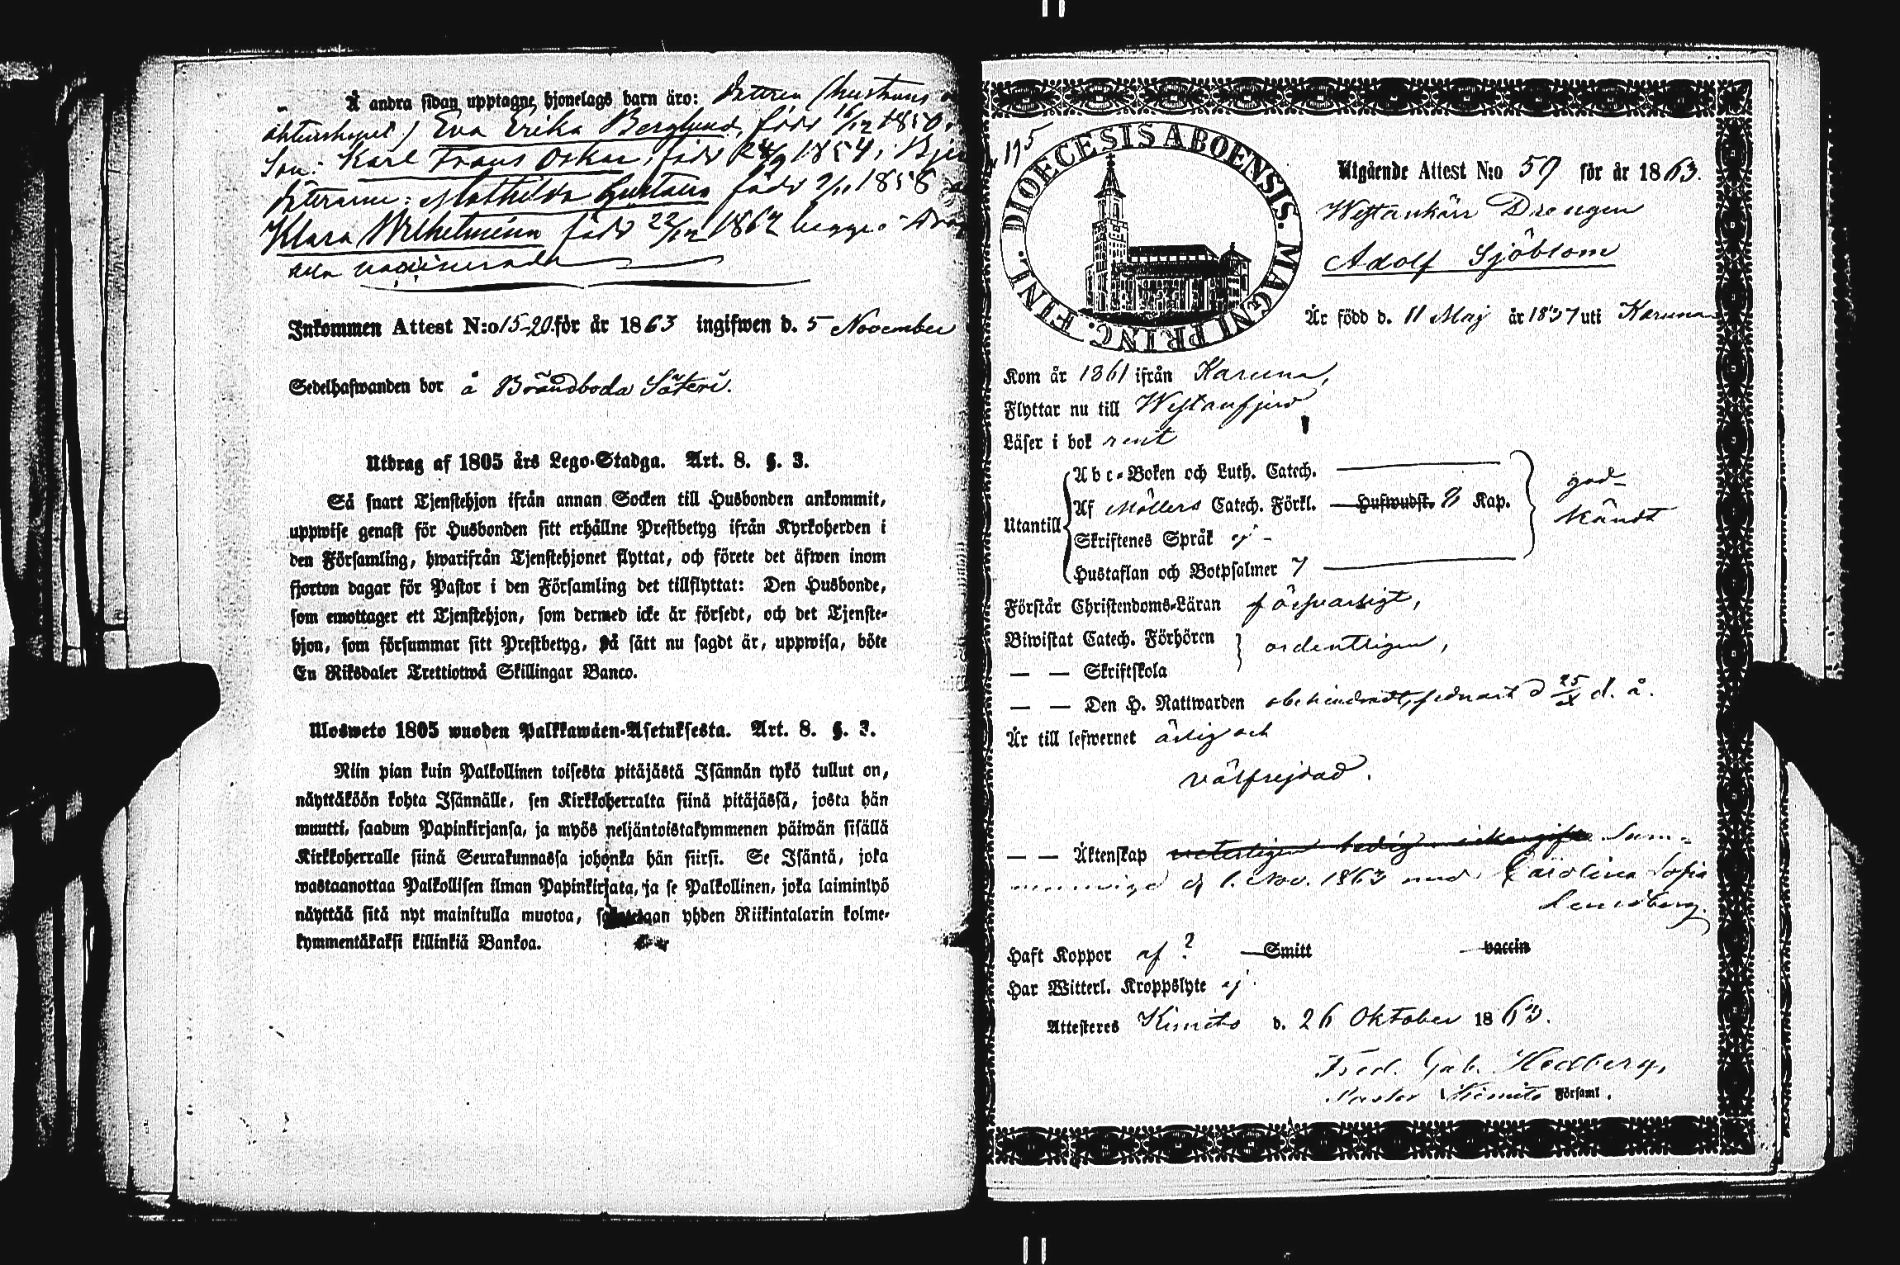 Å andra sidan upptagne hjonelags barn äro:
Eva Erika Berglund, född 16/12 1850.
Son: Karl Frans Oskar, född 24/9 1854,
Mathilda Gustava född 1858
Klara Wilhelmina född 22/12 1862
alla vaccinerade
Inkommen Attest N:o 15-20 för år 1863 ingifwen d. 5 November
Sedelhafwanden bor å Brändboda Säteri.
Utdrag af 1805 års Lego-Stadga. Art. 8. §. 3.
Så snart Tjenstehjon ifrån annan Socken till Husbonden ankommit,
uppwise genast för Husbonden sitt erhållne Prestbetyg ifrån Kyrkoherden i
den Församling, hwarifrån Tjenstehjonet flyttat, och förete det äfwen inom
fjorton dagar för Pastor i den Församling det tillflyttat: Den Husbonde,
som emottager ett Tjenstehjon, som dermed icke är försedt, och det Tjenste-
hjon, som försummar sitt Prestbetyg, på sätt nu sagdt är, uppwisa, böte
En Riksdaler Trettiotwå Skillingar Banco.
Ulosweto 1805 wuoden Palkkawäen-Asetuksesta. Art. 8. §. 3.
Niin pian kuin Palkollinen toisesta pitäjästä Isännän tykö tullut on,
näyttäköön kohta Isännälle, sen Kirkkoherralta siinä pitäjässä, josta hän
muutti, saadun Papinkirjansa, ja myös neljäntoistakymmenen päiwän sisällä
Kirkkoherralle siinä Seurakunnassa johonka hän siirsi. Se Isäntä, joka
wastaanottaa Palkollisen ilman Papinkirjata, ja se Palkollinen, joka laiminlyö
näyttää sitä nyt mainitulla muotoa, yhden Riikintalarin kolme-
kymmentäkaksi killinkiä Bankoa.
195
DIOECESIS ABOENSIS. MAGNI PRINC. FINL.
Utgående Attest N:o 59 för år 1863.
Westankärr Drengen
Adolf Sjöblom
Är född d. 11 Maj år 1837 uti Karuna
Kom år 1861 ifrån Karuna,
Flyttar nu till Westanfjerd
Läser i bok rent
Utantill
Abc-Boken och Luth. Catech.
Af Möllers Catech. Förkl. Hufwudst. 8 Kap.
Skriftenes Språk ej
Hustaflan och Botpsalmer 7
god-
kändt
Förstår Christendoms-Läran försvarligt,
Biwistat Catech. Förhören ordentligen,
— — Skriftskola
— — Den H. Nattwarden obehindradt, sednast d 25/X d. å.
Är till lefwernet ärlig och
välfrejdad.
— — Äktenskap Sam-
manvigd d. 1. Nov. 1863 med Carolina Sofia
Lundberg.
Haft Koppor af ? Smitt vaccin
Har Witterl. Kroppslyte ej
Attesteres Kimito d. 26 Oktober 1863.
Fred. Gab. Hedberg,
Pastor Kimito Församl.